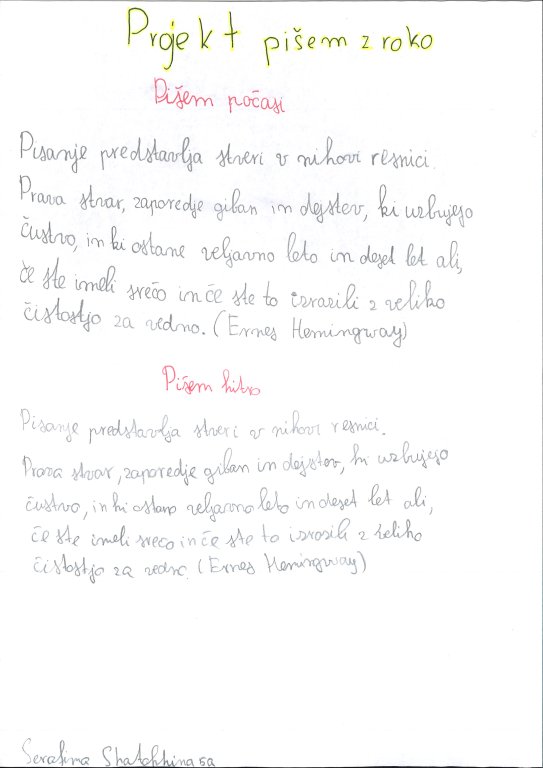 Projekt pišem z roko
Pišem počasi
Pisanje predstavlja stveri v nihovi resnici.
Prava stvar, zaporedje giban in dejstev, ki uzbujejo
čustvo, in ki ostane veljavno leto in deset let ali,
če ste imeli srečo in če ste to izrasili z veliko
čistostjo za vedno. (Ernes Hemingway)
Pišem hitro
Pisanje predstavlja stveri v nihovi resnici.
Prava stvar, zaporedje giban in dejstov, ki uzbujejo
čustvo, in ki ostano veljavno leto in deset let ali,
če ste imeli sreco in če ste to izrosili z veliko
čistostjo za vedno. (Ernes Hemingway)
Serafima 5a